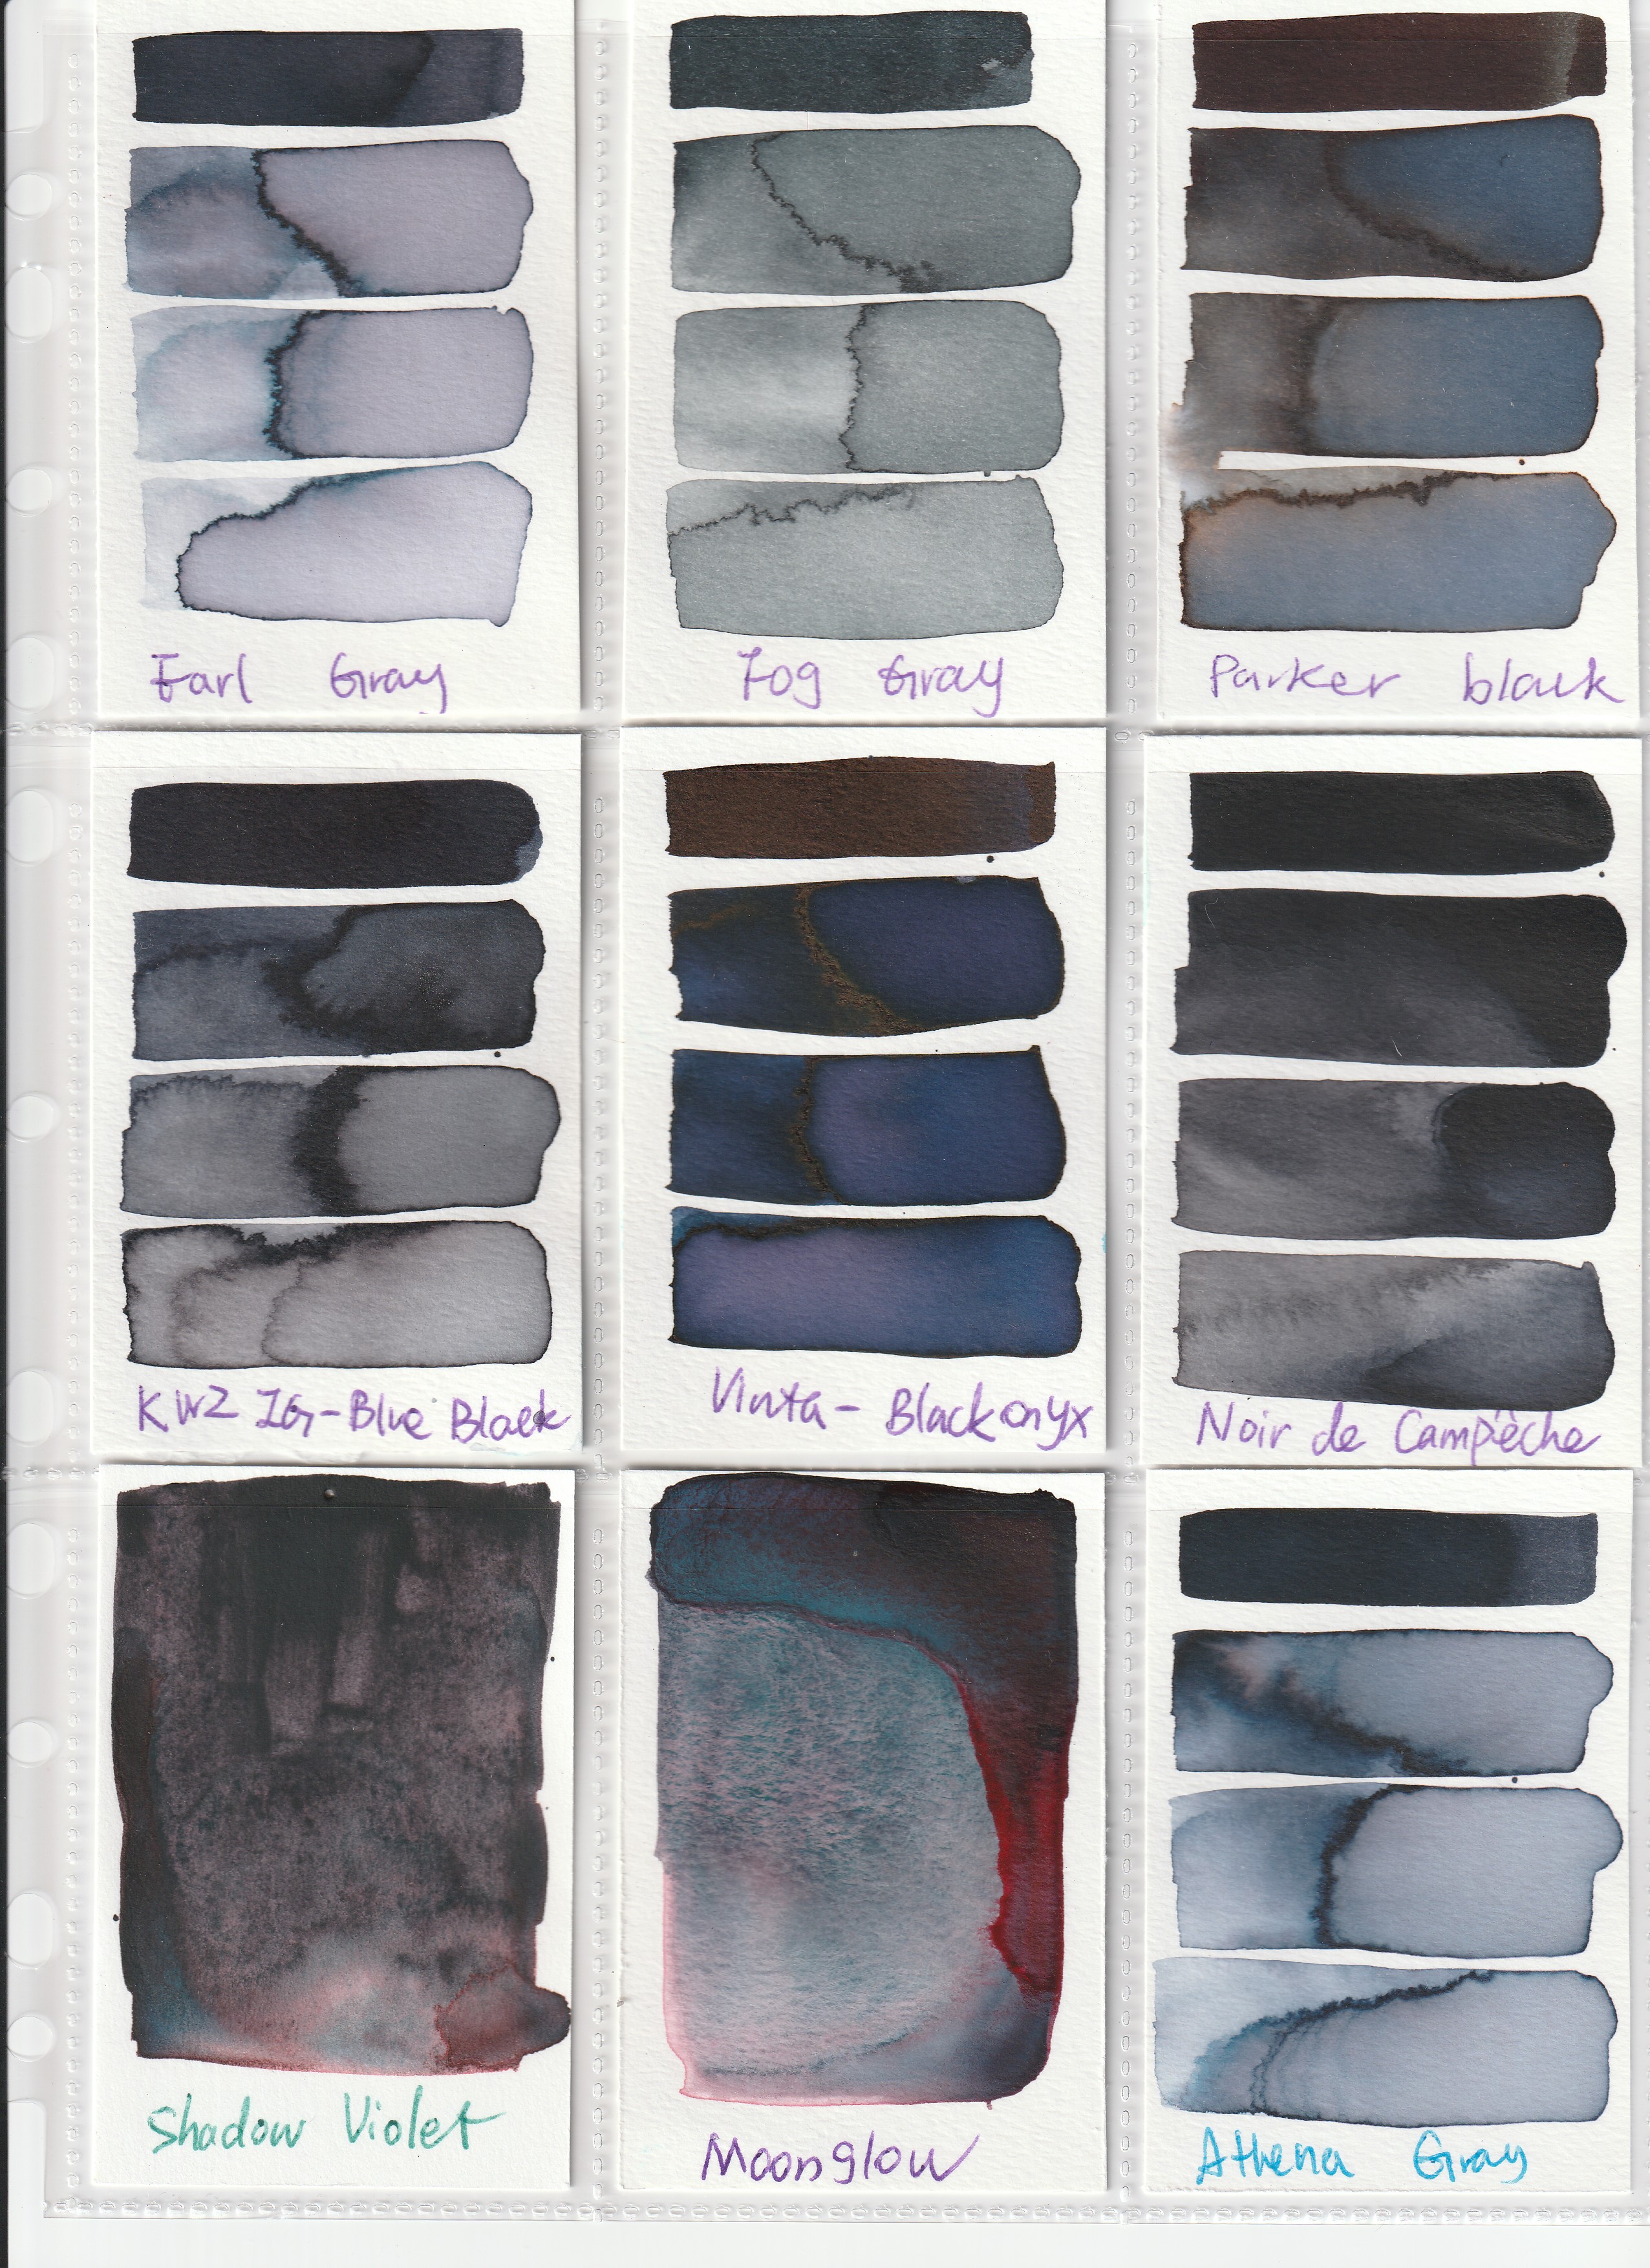 Earl Gray
Fog Gray
Parker black
KWZ IG-Blue Black
Vinta - Blackonyx
Noir de Campêche
Shadow Violet
Moonglow
Athena Gray